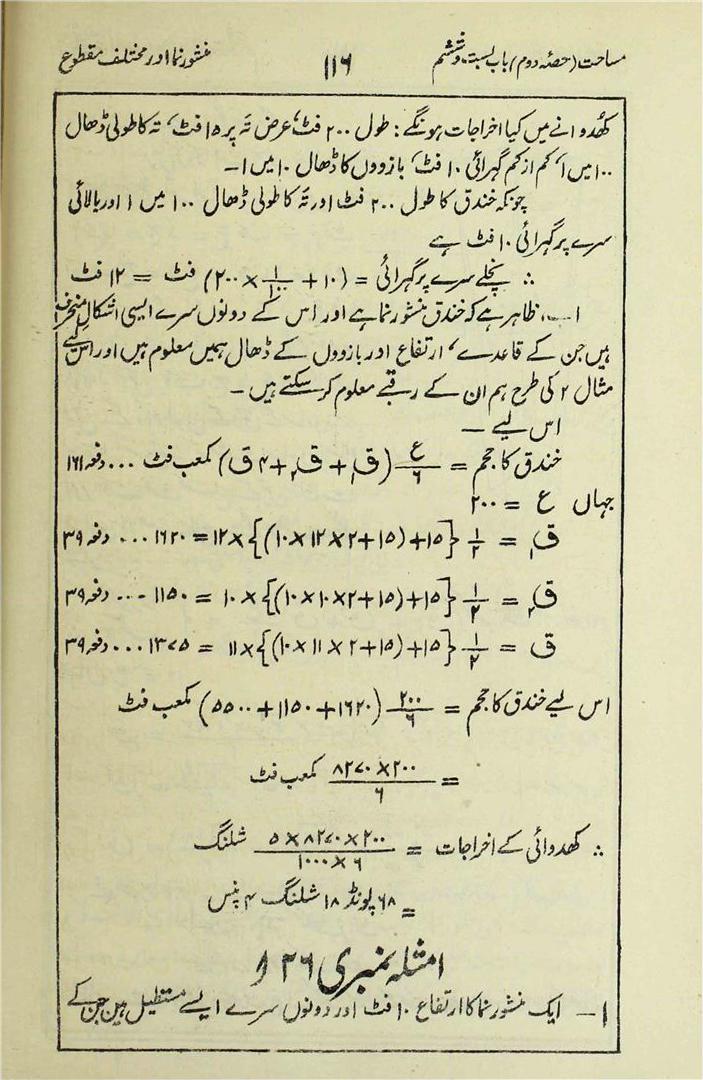 مساحت (حصّہ دوم) باب بست و ششم ۱۱۶ منشور نما اور مختلف مقطوع
کھدوانے میں کیا اخراجات ہونگے: طول ۲۰۰ فٹ، عرض تہ پر ۱۵ فٹ، تہ کا طولی ڈھال
۱۰۰ میں ۱، کم از کم گہرائی ۱۰ فٹ، بازووں کا ڈھال ۱۰ میں ۱ -
چونکہ خندق کا طول ۲۰۰ فٹ اور تہ کا طولی ڈھال ۱۰۰ میں ۱ اور بالائی
سرے پر گہرائی ۱۰ فٹ ہے
∴ نچلے سرے پر گہرائی = (۱۰ + ۱/۱۰۰ × ۲۰۰) فٹ = ۱۲ فٹ
اب، ظاہر ہے کہ خندق منشور نما ہے اور اس کے دونوں سرے ایسی اشکال منحرف
ہیں جن کے قاعدے، ارتفاع اور بازووں کے ڈھال ہمیں معلوم ہیں اور اس لیے
مثال ۲ کی طرح ہم ان کے رقبے معلوم کر سکتے ہیں -
اس لیے -
خندق کا حجم = ع/۶ (ق۱ + ق۲ + ۴ ق) مکعب فٹ ... دفعہ ۱۶۱
جہاں ع = ۲۰۰
ق۱ = ۱/۲ {۱۵ + (۱۵ + ۲ × ۱۲ × ۱۰)} × ۱۲ = ۱۶۲۰ ... دفعہ ۳۹
ق۲ = ۱/۲ {۱۵ + (۱۵ + ۲ × ۱۰ × ۱۰)} × ۱۰ = ۱۱۵۰ ... دفعہ ۳۹
ق = ۱/۲ {۱۵ + (۱۵ + ۲ × ۱۱ × ۱۰)} × ۱۱ = ۱۳۷۵ ... دفعہ ۳۹
اس لیے خندق کا حجم = ۲۰۰/۶ (۱۶۲۰ + ۱۱۵۰ + ۵۵۰۰) مکعب فٹ
= ۲۰۰ × ۸۲۷۰/۶ مکعب فٹ
∴ کھدوائی کے اخراجات = ۲۰۰ × ۸۲۷۰ × ۵/۶ × ۱۰۰۰ شلنگ
= ۶۸ پونڈ ۱۸ شلنگ ۴ پنس
امثلہ نمبری ۱۲۶
۱ - ایک منشور نما کا ارتفاع ۱۰ فٹ اور دونوں سرے ایسے مستطیل ہیں جن کے